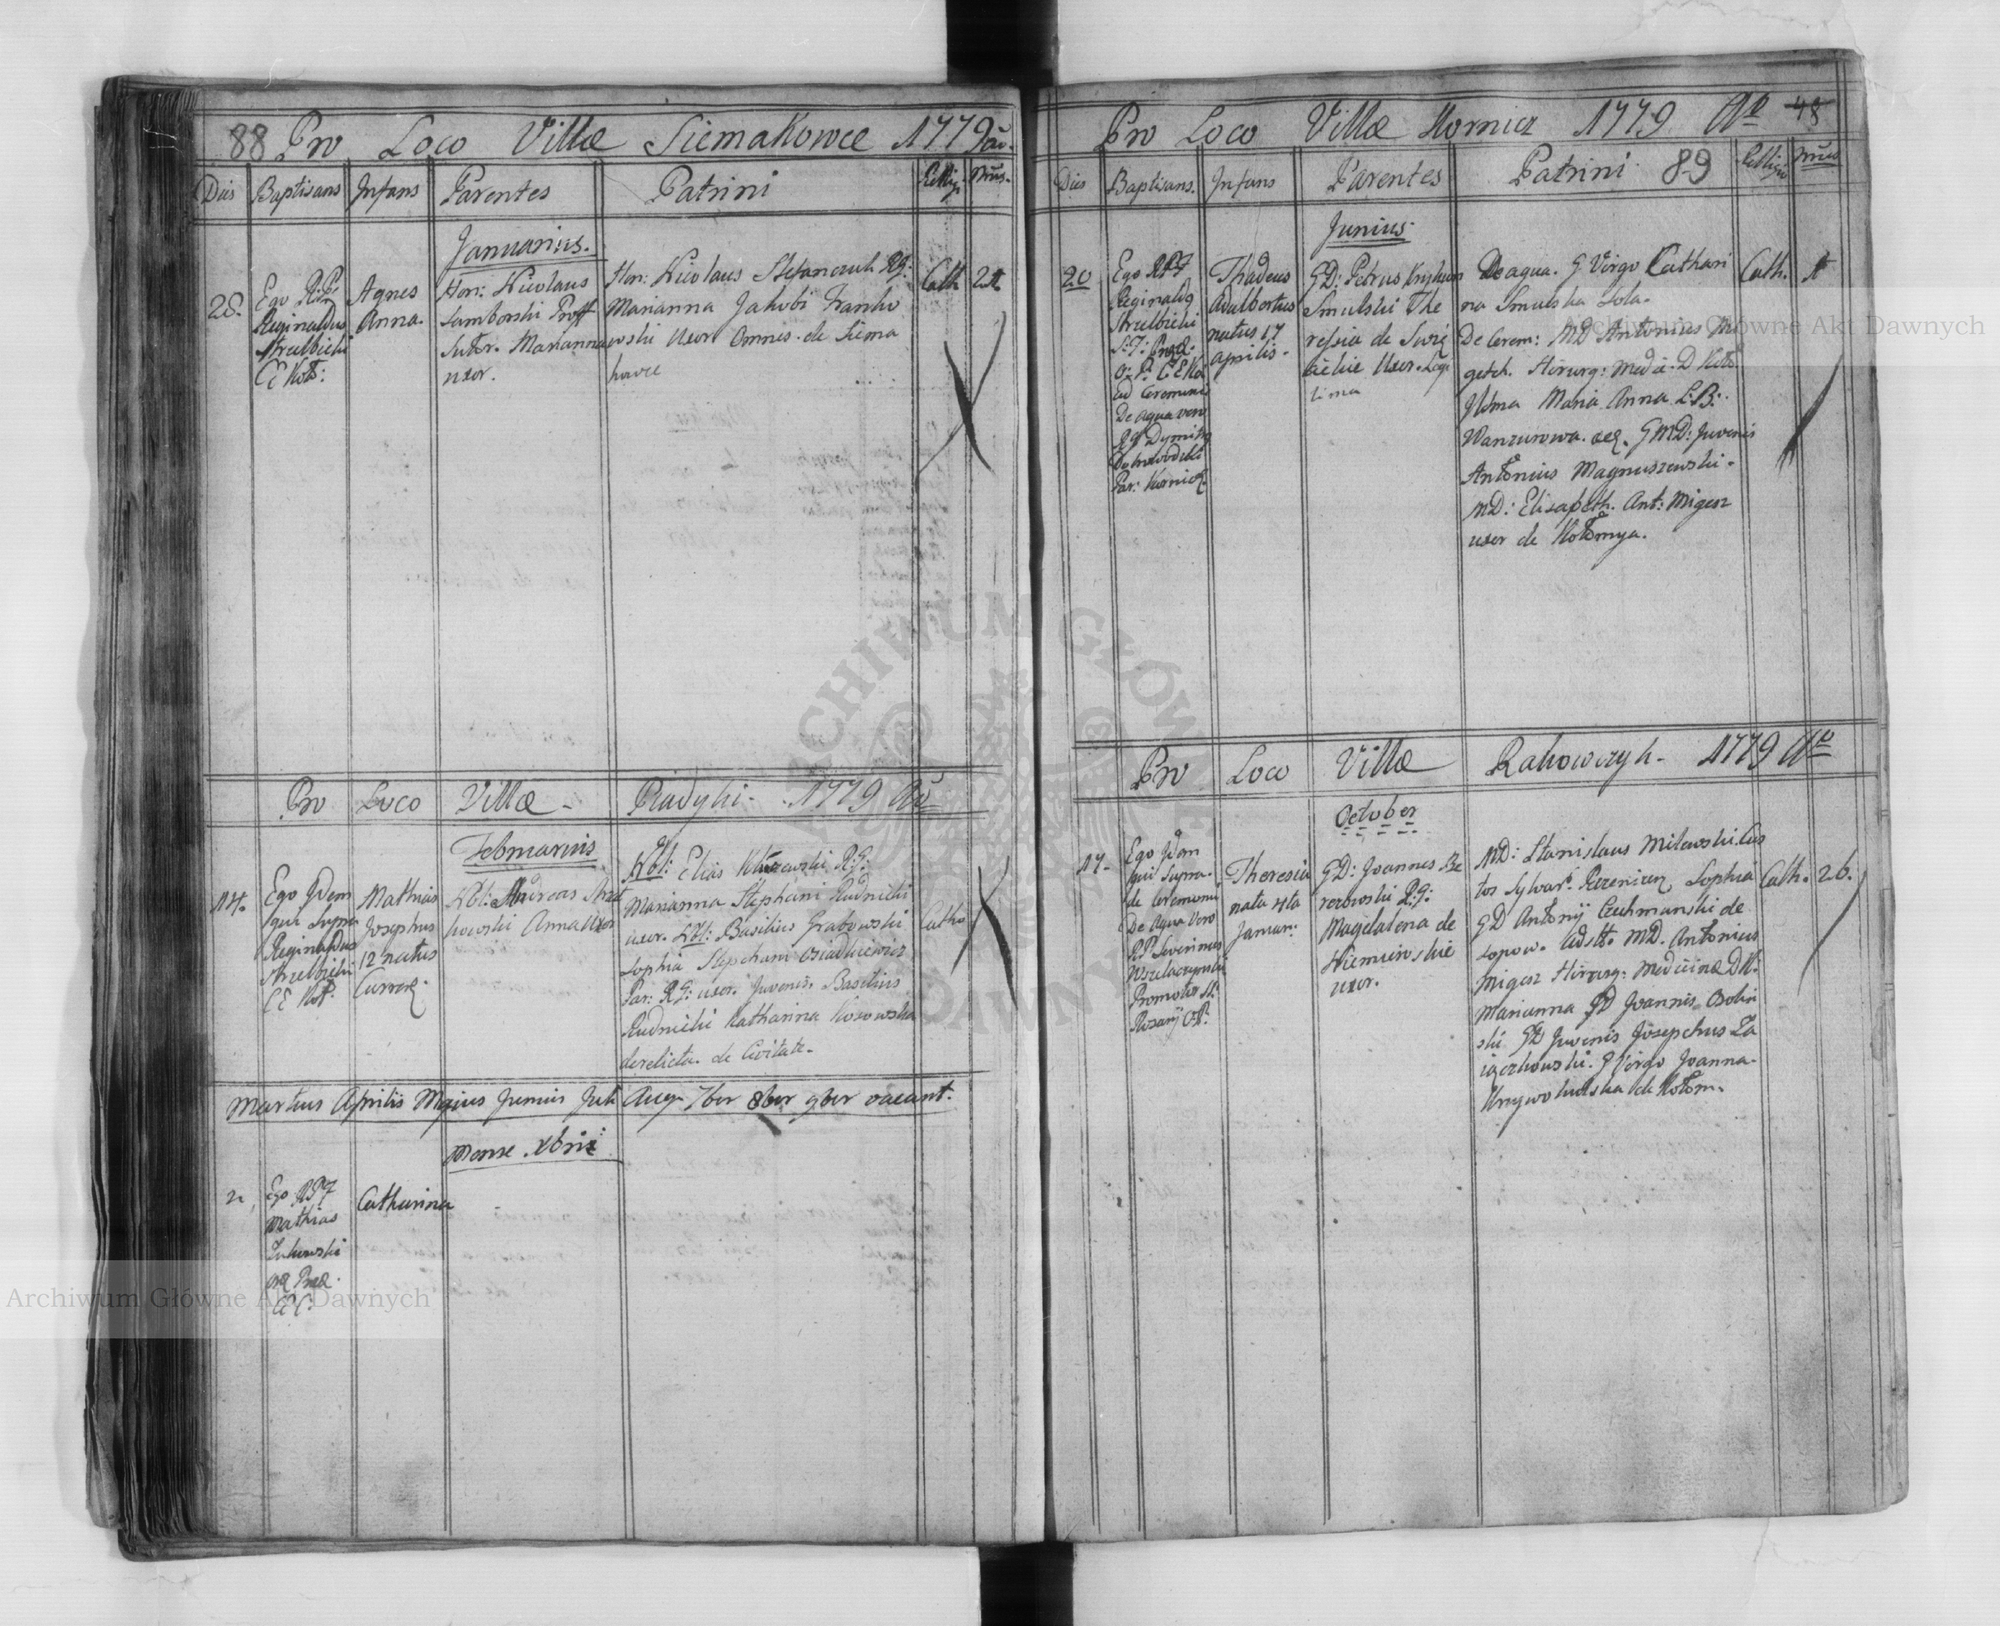 88 Pro Loco Villæ Siemakowce 1779 Aō.
Dies Baptisans Infans Parentes Patrini Religi: Nrus.
Januarius.
28.
Ego R.P.
Reginaldus
Strzelbicki
CE Koło:
Agnes
Anna.
Hon: Nicolaus
Samborski Proff
Sutor. Marianna
uxor.
Hon: Nicolaus Stefanczuk RG:
Marianna Jakobi Franko
wski Uxor Omnes de Siema
kowce
Cath
Pro Loco Villæ - Rudylki - 1779 Aō
Februarius
14.
Ego Idem
qui supra
Reginaldus
Strzelbicki
CE Koł.
Mathias
Josephus
12 natus
Curren.
Nbl: Andreas
kowski Anna Uxor
Nbl: Elias R:G:
Marianna Stephani Rudnicki
uxor. Nbl: Basilius Grabowski
Sophia Stephani Osiadkiewicz
Par: RG: uxor. Juvenis. Basilius
Rudnicki Katharina Kosowska
derelicta. de Civitate.
Catho
Martius Aprilis Majus Junius Juli Aug. 7ber 8ber 9ber vacant.
Mense Xbris
2
Ego RPF
Mathias
Żukowski
Catharina
Pro Loco Villæ Kornicz 1779 Aō 48
Dies Baptisans. Infans Parentes Patrini 89 Religio Nrus
Junius.
20
Ego RPF
Reginaldus
Strzelbicki
O: P. CEKoł
ad Ceremonias
De aqua vero
Par: Kornicz
Thadeus
Adalbertus
natus 17
Aprilis.
GD: Petrus
Smulski The
resia de
Uxor. Legi
tima
De aqua. G Virgo Cathari
na Smulska Sola.
De Cerem: MD Antonius Mi
Hirurg: Medi: D Koło
Illma Maria Anna L:B:
GMD: Juvenis
Antonius Magnuszewski.
MD: Elisabeth. Ant: Migesz
uxor de Kołomya.
Cath.
Pro Loco Villæ Rakowczyk. 1779 Aō
October
17.
Ego Idem
qui Supra.
de Ceremoniis
De Aqua Vero
RP. Severinus
Promotor SS.
Rosarij O.P.
Theresia
nata 4ta
Januar:
GD: Joannes
rezowski R:G:
Magdalena de
Niemirowskie
uxor.
MD: Stanislaus Milewski Cus
tos Sylvar. Sophia
GD Antonij Czechmanski de
MD. Antonius
Migesz Hirurg: Medicinæ DK:
Marianna GD Joannis Osolin
ski GD Juvenis Josephus Za
iączkowski. G Virgo Joanna
Krzywokulska de Kołom.
Cath. 26.
ARCHIWUM GŁÓWNE AKT DAWNYCH
Archiwum Główne Akt Dawnych
Archiwum Główne Akt Dawnych